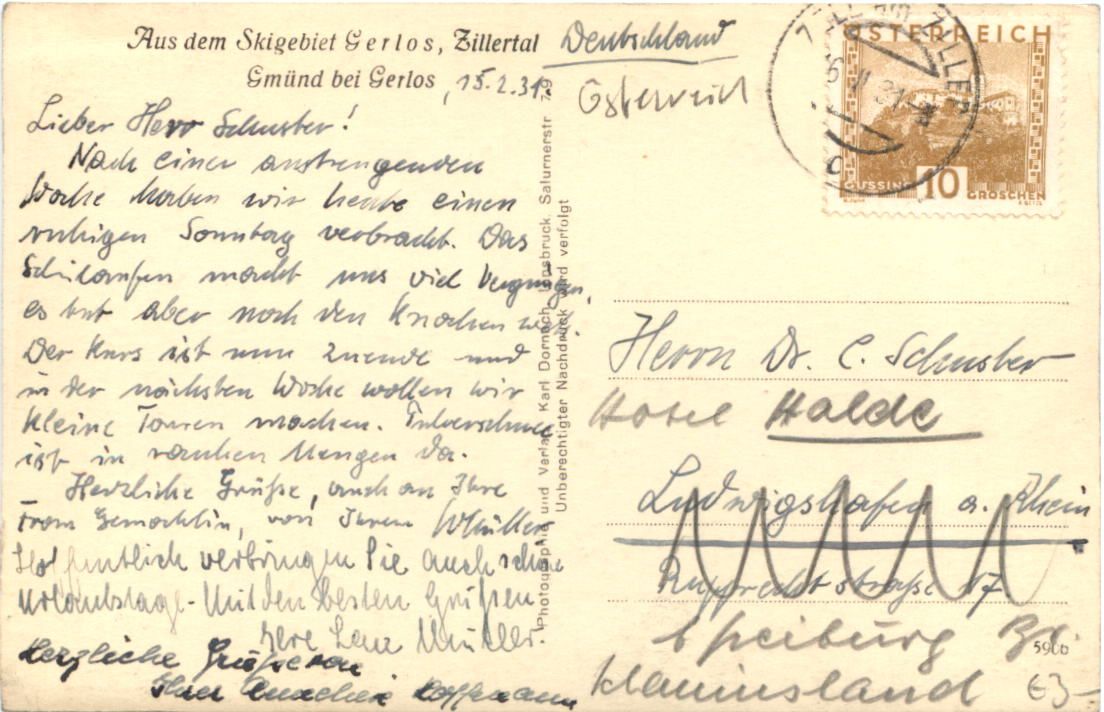 Aus dem Skigebiet Gerlos, Zillertal
Gmünd bei Gerlos
15.2.31.
Lieber Herr Schuster!
Nach einer anstrengenden
Woche haben wir heute einen
ruhigen Sonntag verbracht. Das
Schilaufen macht uns viel Vergnügen,
es tut aber noch den Knochen weh.
Der Kurs ist nun zuende und
in der nächsten Woche wollen wir
kleine Touren machen. Pulverschnee
ist in rauhen Mengen da.
Herzliche Grüße, auch an Ihre
Frau Gemahlin, von Ihrem WMüller
Hoffentlich verbringen Sie auch schöne
Urlaubstage. Mit den besten Grüßen
Ihre Lena Müller.
Herzliche Grüße von
Hoffmann
Photographie und Verlag Karl Dornach, Innsbruck, Salurnerstr
Unberechtigter Nachdruck wird verfolgt
Deutschland
Österreich
ZELL AM ZILLER
ÖSTERREICH
GÜSSING
10
GROSCHEN
Herrn Dr. C. Schuster
Hotel Halde
Ludwigshafen a. Rhein
Rupprechtstraße 17
Freiburg
Schauinsland
5900
€3-